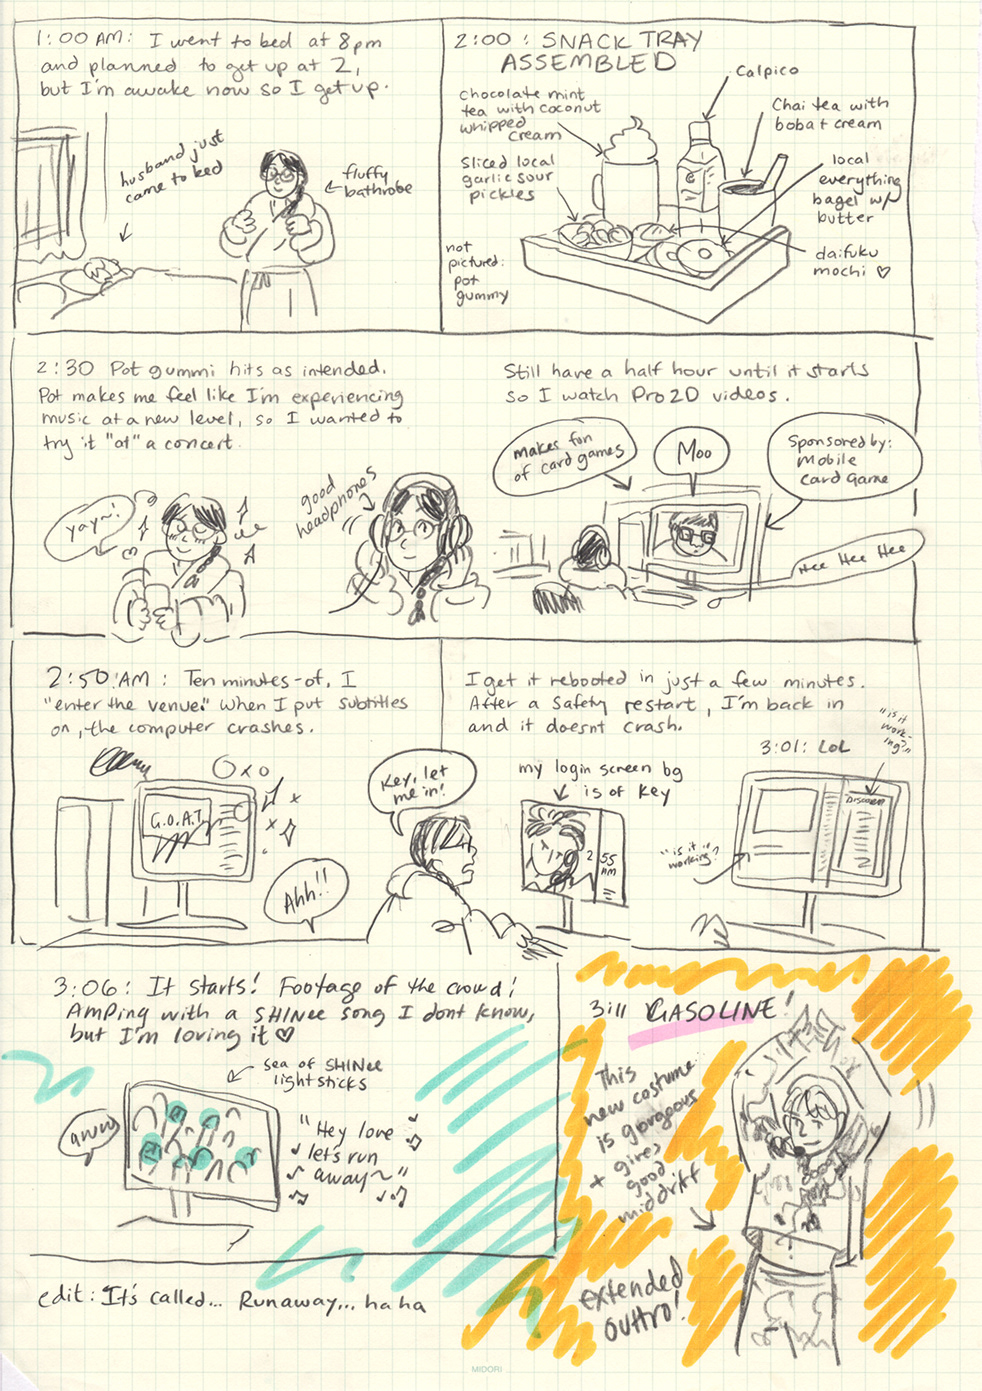 1:00 AM: I went to bed at 8pm
and planned to get up at 2,
but I'm awake now so I get up.
husband just
came to bed
fluffy
bathrobe
2:00: SNACK TRAY
ASSEMBLED
Calpico
chocolate mint
tea with coconut
whipped
cream
Chai tea with
boba + cream
sliced local
garlic sour
pickles
local
everything
bagel w/
butter
not
pictured:
pot
gummy
daifuku
mochi ♡
2:30 Pot gummi hits as intended.
Pot makes me feel like I'm experiencing
music at a new level, so I wanted to
try it "at" a concert.
yay~!
good
headphones
Still have a half hour until it starts
so I watch Pro ZD videos.
makes fun
of card games
Moo
Sponsored by:
Mobile
card game
Hee Hee Hee
2:50 AM: Ten minutes-of, I
"enter the venue." When I put subtitles
on, the computer crashes.
G.O.A.T.
Ahh!!
I get it rebooted in just a few minutes.
After a safety restart, I'm back in
and it doesnt crash.
Key, let
me in!
my login screen bg
is of Key
2:55
AM
3:01: LOL
"is it
work-
ing?"
DISCORD
"is it
working?"
3:06: It starts! Footage of the crowd!
AMPing with a SHINee song I dont know,
but I'm loving it ♡
sea of SHINee
lightsticks
aww
"Hey love
let's run
away~"
edit: It's called... Runaway... haha
3:11 GASOLINE!
This
new costume
is gorgeous
+ gives
good
middriff
extended
outtro!
MIDORI